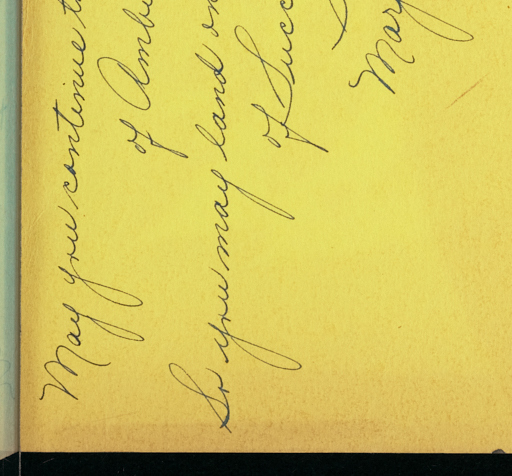 May you continue t
of Ambi
So you may land on
of Succ
Mary